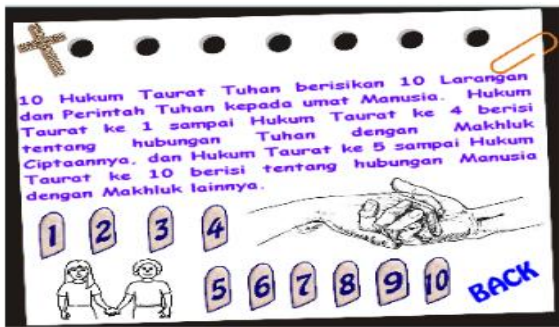 10 Hukum Taurat Tuhan berisikan 10 Larangan
dan Perintah Tuhan kepada umat Manusia. Hukum
Taurat ke 1 sampai Hukum Taurat ke 4 berisi
tentang hubungan Tuhan dengan Makhluk
Ciptaannya, dan Hukum Taurat ke 5 sampai Hukum
Taurat ke 10 berisi tentang hubungan Manusia
dengan Makhluk lainnya.
1 2 3 4
5 6 7 8 9 10 BACK